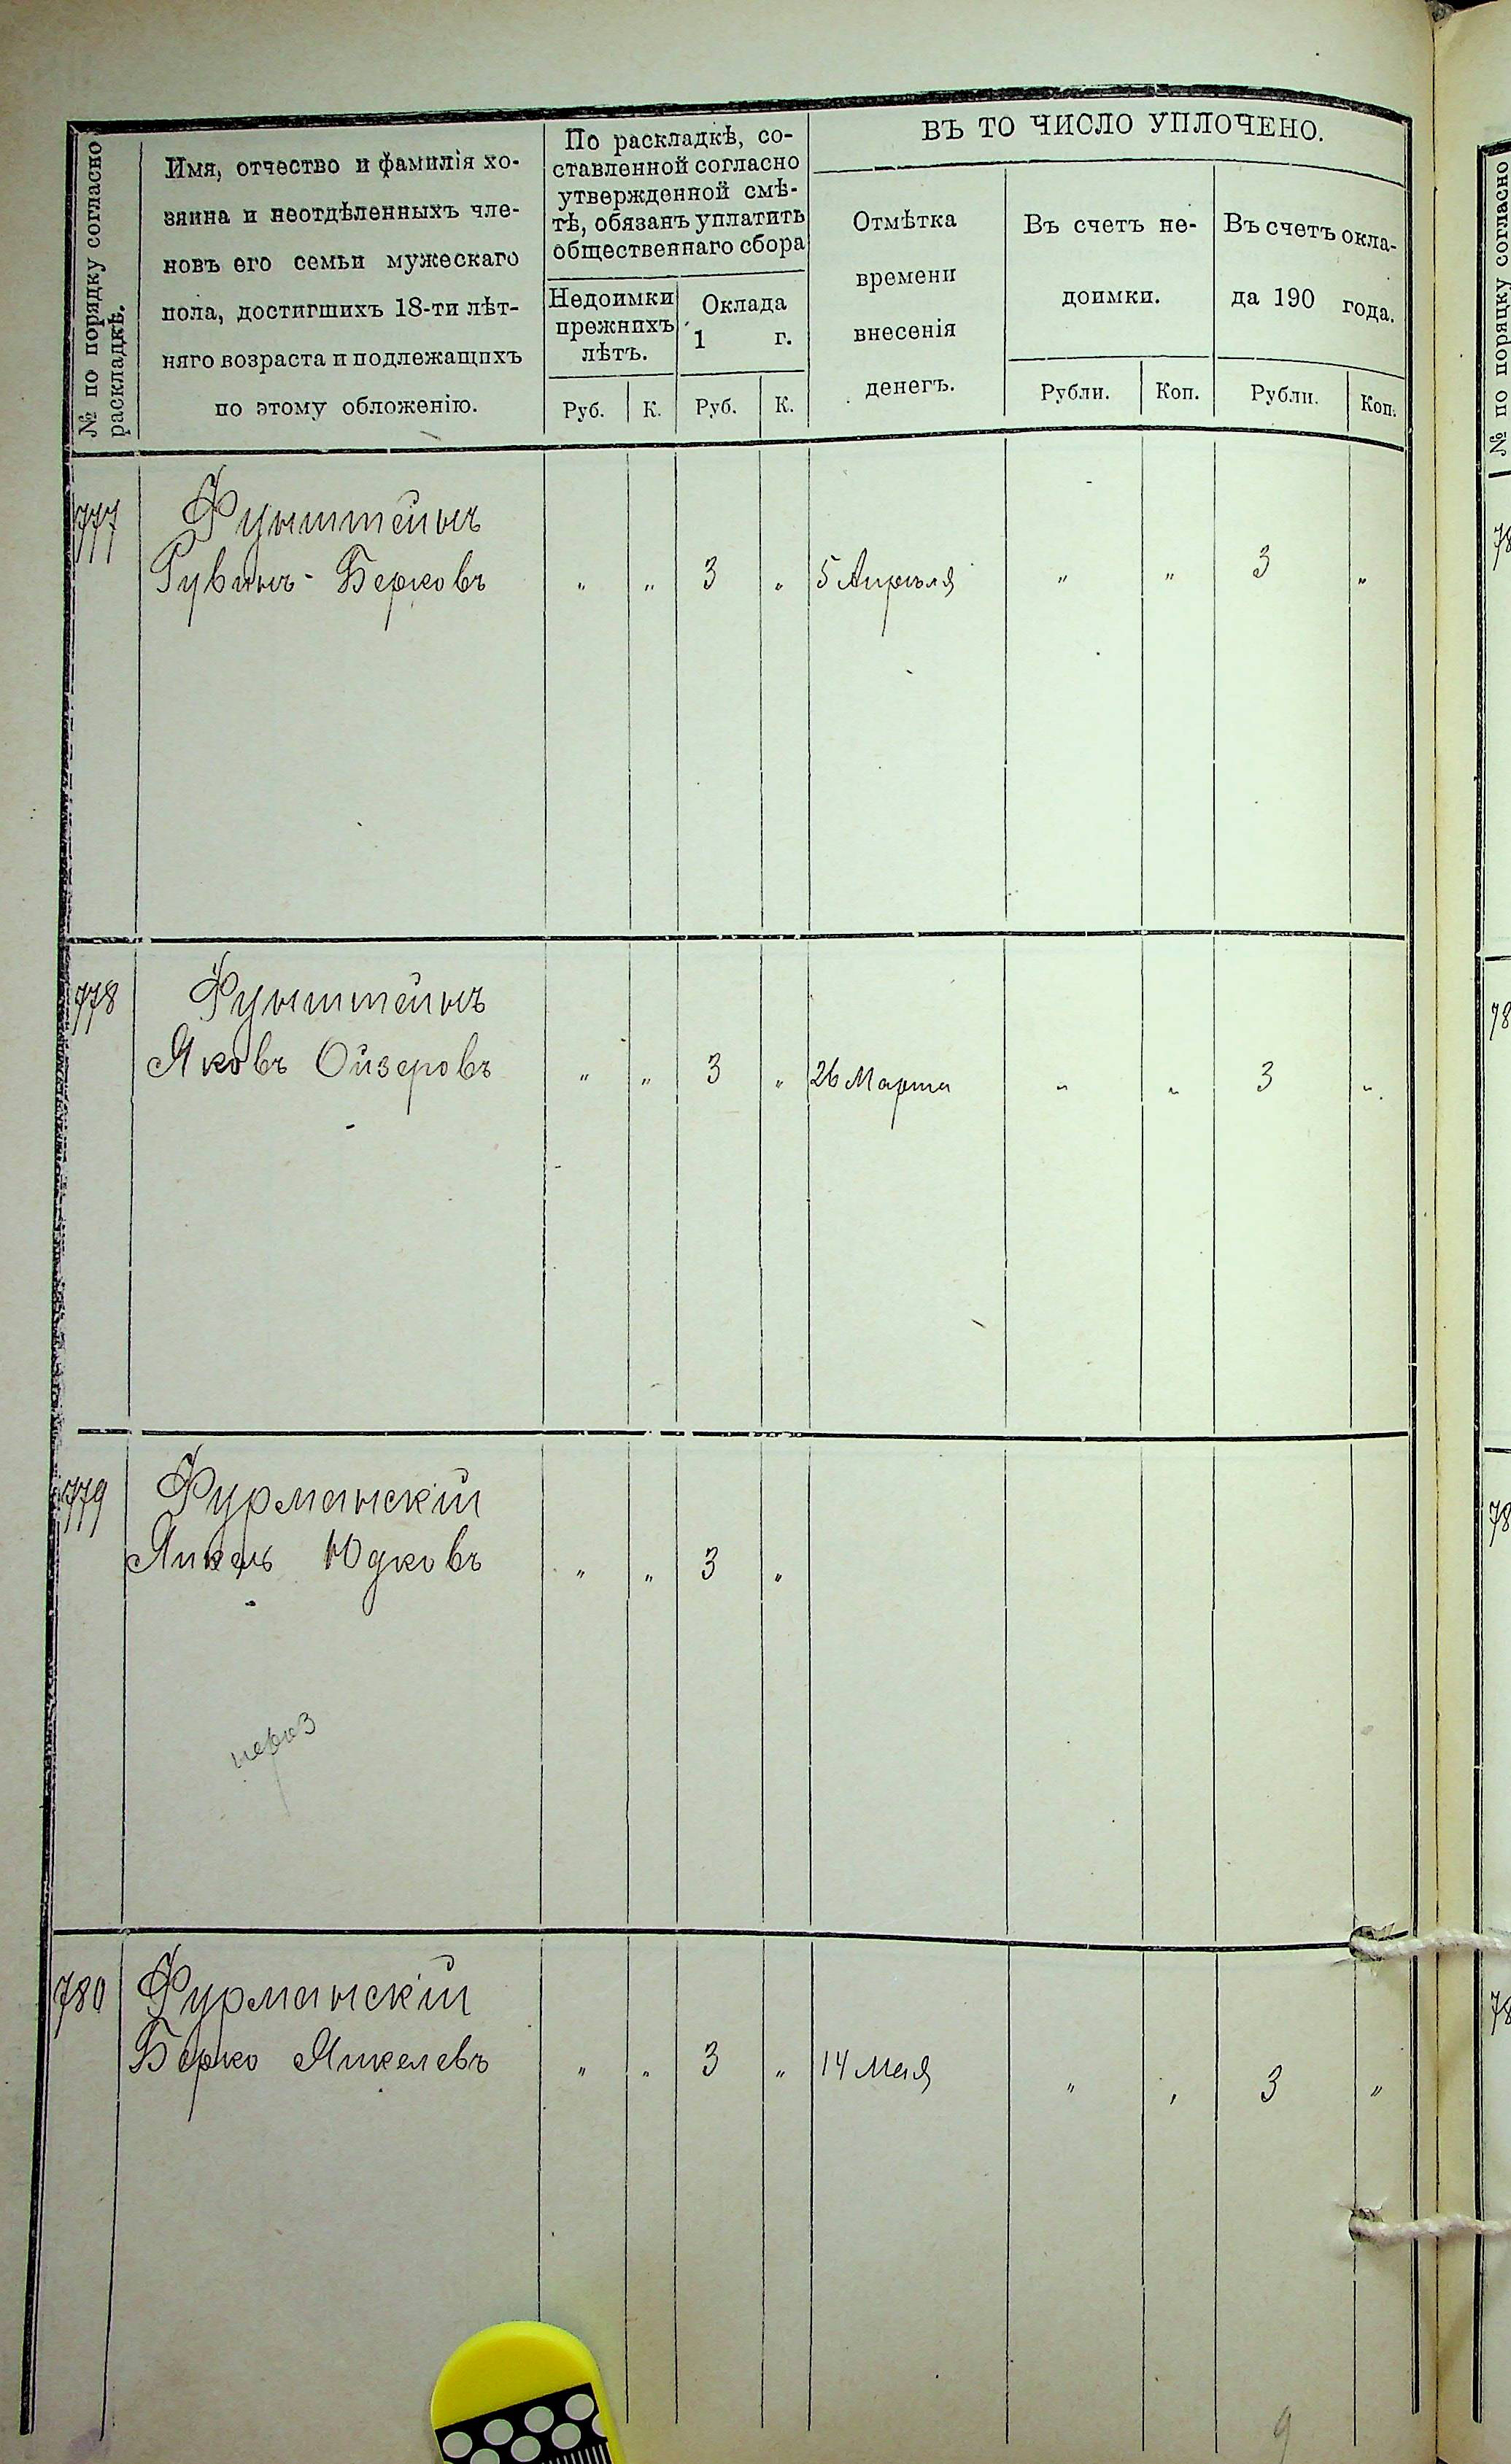 № по порядку согласно
раскладкѣ.
Имя, отчество и фамилія хо-
зяина и неотдѣленныхъ чле-
новъ его семьи мужескаго
пола, достигшихъ 18-ти лѣт-
няго возраста и подлежащихъ
по этому обложенію.
По раскладкѣ, со-
ставленной согласно
утвержденной смѣ-
тѣ, обязанъ уплатить
общественнаго сбора
Недоимки
прежнихъ
лѣтъ.
Руб. К.
Оклада
1 г.
Руб. К.
ВЪ ТО ЧИСЛО УПЛОЧЕНО.
Отмѣтка
времени
внесенія
денегъ.
Въ счетъ не-
доимки.
Рубли. Коп.
Въ счетъ окла-
да 190 года.
Рубли. Коп.
777 Функштейнъ
Рувинъ-Берковъ " " 3 " 5 Апрѣля " " 3 "
778 Функштейнъ
Яковъ Ойзеровъ " " 3 " 26 Марта " " 3 "
779 Фурманскій
Янкель Юдковъ " " 3 "
780 Фурманскій
Берко Янкелевъ " " 3 " 14 Мая " " 3 "
9
№ по порядку согласно